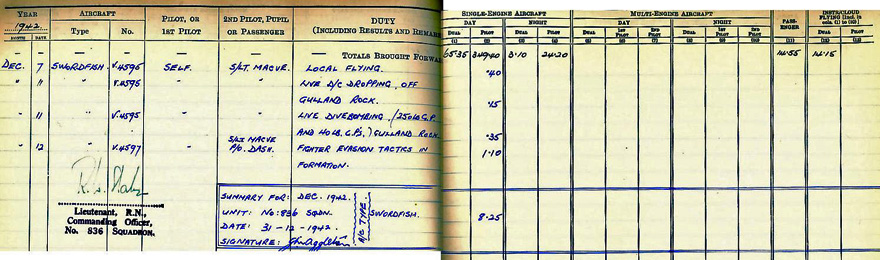 YEAR 1942 AIRCRAFT PILOT, OR 1ST PILOT 2ND PILOT, PUPIL OR PASSENGER DUTY (INCLUDING RESULTS AND REMARKS SINGLE-ENGINE AIRCRAFT MULTI-ENGINE AIRCRAFT PASS-ENGER INSTR/CLOUD FLYING [Incl. in cols. (1) to (10)]
MONTH DATE Type No. DAY NIGHT DAY NIGHT
DUAL PILOT DUAL PILOT DUAL 1ST PILOT 2ND PILOT DUAL 1ST PILOT 2ND PILOT DUAL PILOT
(1) (2) (3) (4) (5) (6) (7) (8) (9) (10) (11) (12) (13)
— — — — — — — TOTALS BROUGHT FORWA 65·35 3·10 24·20 14·55 14·15
DEC. 7 SWORDFISH. V.4595 SELF. S/LT. MACVE. LOCAL FLYING. ·40
" 11 " V.4596 " " LIVE D/C DROPPING, OFF
GULLAND ROCK. ·15
" 11 " V.4595 " " LIVE DIVEBOMBING. (250lb G.P.
AND 40LB. G.P's,) GULLAND ROCK. ·35
" 12 " V.4597 " S/LT MACVE P/O. DASH. FIGHTER EVASION TACTICS IN 1·10
FORMATION.
Lieutenant, R.N.,
Commanding Officer,
No. 836 SQUADRON.
SUMMARY FOR: DEC. 1942.
UNIT: No: 836 SQDN. A/C TYPE SWORDFISH. 8·25
DATE: 31-12-1942.
SIGNATURE: